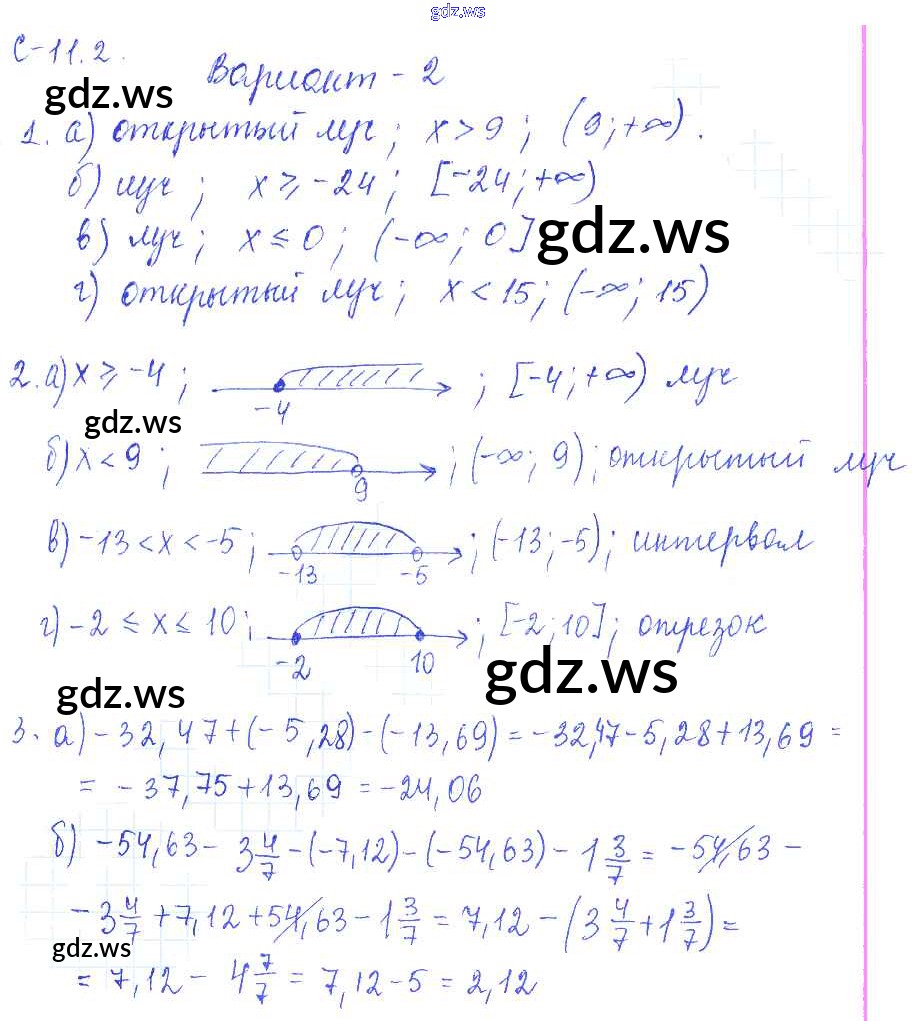 gdz.ws
С-11.2.
Вариант - 2
gdz.ws
1. а) открытый луч; x > 9; (9; +∞).
б) луч; x ⩾ -24; [-24; +∞)
в) луч; x ≤ 0; (-∞; 0] gdz.ws
г) открытый луч; x < 15; (-∞; 15)
2. а) x ⩾ -4; -4 ; [-4; +∞) луч
gdz.ws
б) x < 9; 9 ; (-∞; 9); открытый луч
в) -13 < x < -5; -13 -5 ; (-13; -5); интервал
г) -2 ≤ x ≤ 10; -2 10 ; [-2; 10]; отрезок
gdz.ws gdz.ws
3. а) -32,47 + (-5,28) - (-13,69) = -32,47 - 5,28 + 13,69 =
= -37,75 + 13,69 = -24,06
б) -54,63 - 3 4/7 - (-7,12) - (-54,63) - 1 3/7 = -54,63 -
-3 4/7 + 7,12 + 54,63 - 1 3/7 = 7,12 - (3 4/7 + 1 3/7) =
gdz.ws
= 7,12 - 4 7/7 = 7,12 - 5 = 2,12